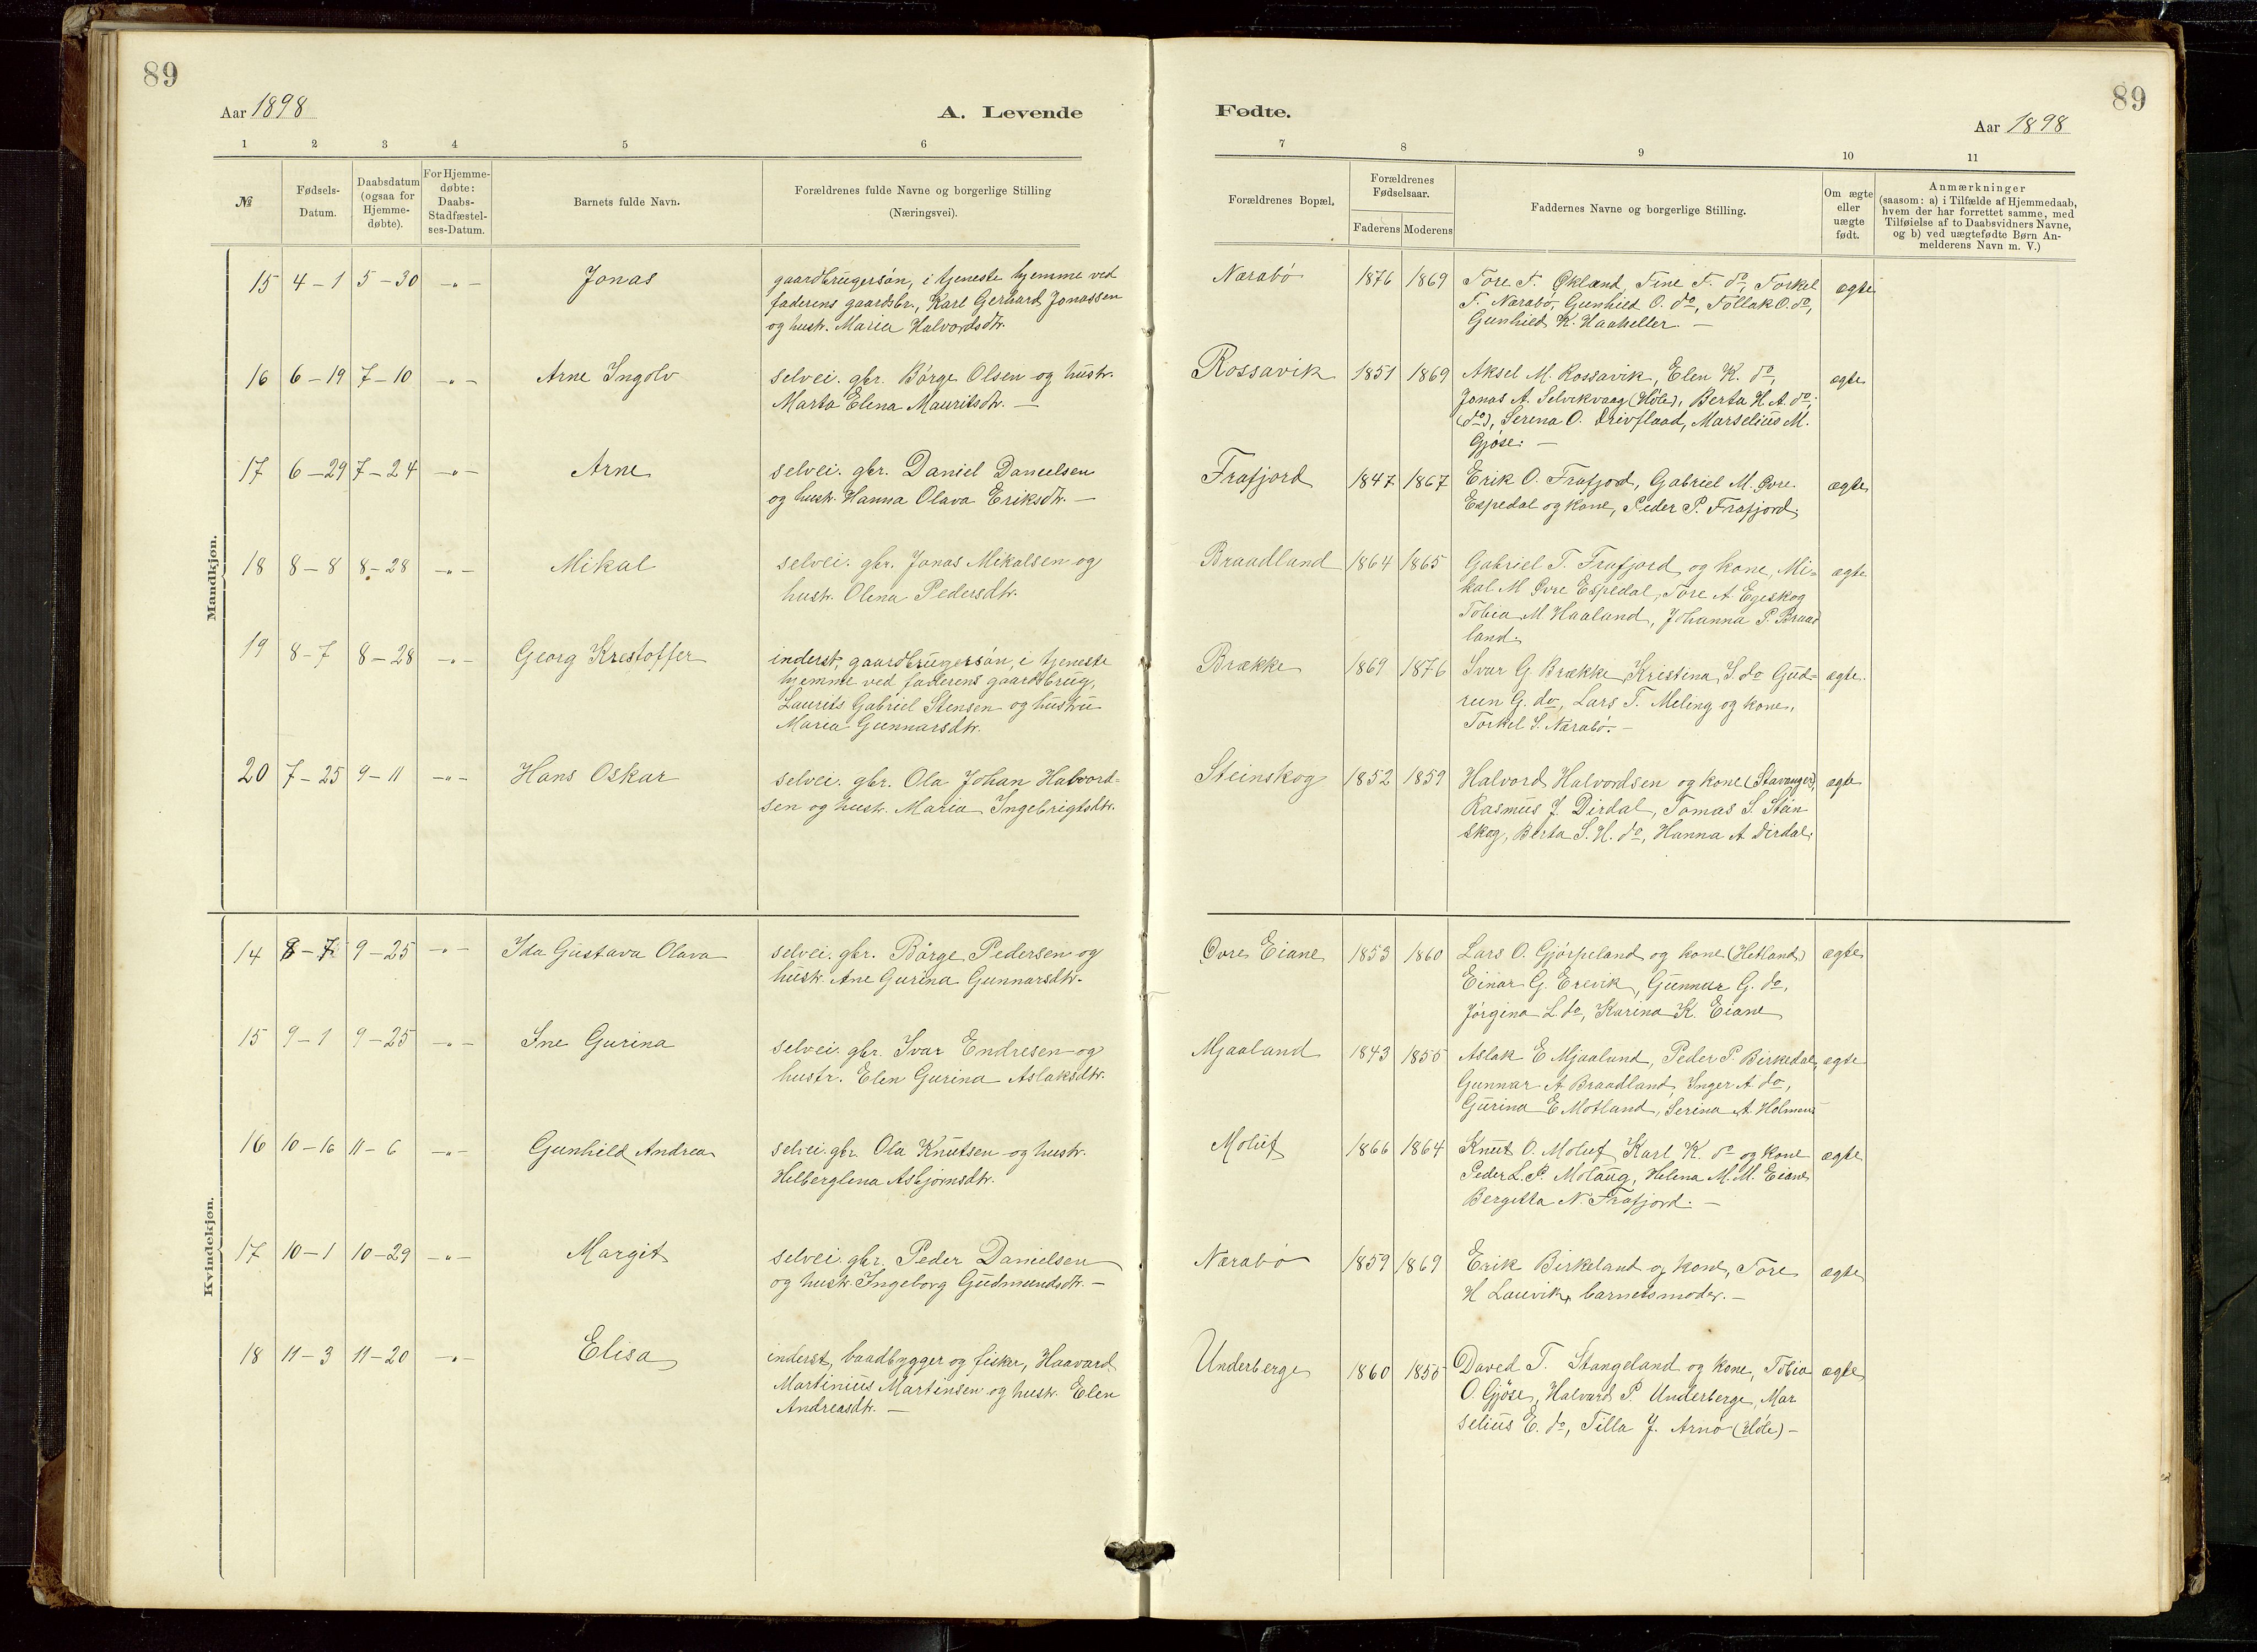 89
Aar 1898
A. Levende
1 2 3 4 5 6
№ Fødsels-Datum. Daabsdatum (ogsaa for Hjemme-døbte). For Hjemme-døbte: Daabs-Stadfæstel-ses-Datum. Barnets fulde Navn. Forældrenes fulde Navne og borgerlige Stilling (Næringsvei).
Mandkjøn.
15 4-1 5-30 -"- Jonas gaardbrugersøn, i tjeneste hjemme ved
faderens gaardsbr., Karl Gerhard Jonassen
og hustr. Maria Halvordsdtr.
16 6-19 7-10 -"- Arne Ingolv selvei. gbr. Børge Olsen og hustr.
Marta Elena Mauritsdtr. -
17 6-29 7-24 -"- Arne selvei. gbr. Daniel Danielsen
og hustr. Hanna Olava Eriksdtr. -
18 8-8 8-28 -"- Mikal selvei. gbr. Jonas Mikalsen og
hustr. Olena Pedersdtr.
19 8-7 8-28 -"- Georg Krestoffer inderst, gaardbrugersøn, i tjeneste
hjemme ved faderens gaardsbrug,
Laurits Gabriel Stensen og hustru
Maria Gunnarsdtr.
20 7-25 9-11 -"- Hans Oskar selvei. gbr. Ola Johan Halvord-
sen og hustr. Maria Ingebrigtsdtr.
Kvindekjøn.
14 8-7 9-25 -"- Ida Gustava Olava selvei. gbr. Børge Pedersen og
hustr. Ane Gurina Gunnarsdtr.
15 9-1 9-25 -"- Ine Gurina selvei. gbr. Ivar Endresen og
hustr. Elen Gurina Aslaksdtr.
16 10-16 11-6 -"- Gunhild Andrea selvei. gbr. Ola Knutsen og hustr.
Helberglena Asbjørnsdtr.
17 10-1 10-29 -"- Margit selvei. gbr. Peder Danielsen
og hustr. Ingeborg Gudmundsdtr. -
18 11-3 11-20 -"- Elisa inderst, baadbygger og fisker, Haavard
Martinius Martinsen og hustr. Elen
Andreasdtr. -
89
Fødte.
Aar 1898
7 8 9 10 11
Forældrenes Bopæl. Forældrenes Fødselsaar. Faderens Moderens Faddernes Navne og borgerlige Stilling. Om ægte eller uægte født. Anmærkninger
(saasom: a) i Tilfælde af Hjemmedaab,
hvem der har forrettet samme, med
Tilføielse af to Daabsvidners Navne,
og b) ved uægtefødte Børn An-
melderens Navn m. V.)
Nærabø 1876 1869 Tore T. Økland, Tine T. do, Torkel ægte
T. Nærabø, Gunhild O. do, Tollak O. do,
Gunhild K. Haaheller. -
Rossavik 1851 1869 Aksel M. Rossavik, Elen K. do, ægte
Jonas A. Selvikvaag (Høle), Berta H. A. do,
(do), Serena O. Drivflaad, Marselius M.
Gjøse. -
Frafjord 1847 1867 Erik O. Frafjord, Gabriel M. Øvre ægte
Espedal og kone, Peder P. Frafjord.
Braadland 1864 1865 Gabriel T. Frafjord og kone, Mi- ægte
kal M Øvre Espedal, Tore A Egeskog
Tobia M. Haaland, Johanna P. Braad
land.
Brække 1869 1876 Ivar G. Brække, Kristina S. do Gud- ægte
run G. do, Lars T. Meling og kone,
Torkel S. Nærabø. -
Steinskog 1852 1859 Halvord Halvordsen og kone (Stavanger), ægte
Rasmus J. Dirdal, Tomas S. Stein
skog, Berta S. H. do, Hanna A Dirdal.
Øvre Eiane 1853 1860 Lars O. Gjørpeland og kone (Hetland) ægte
Einar G. Erevik, Gunnar G. do,
Jørgina L. do, Karina K. Eiane
Mjaaland 1843 1855 Aslak E Mjaaland, Peder P. Birkedal, ægte
Gunnar A Braadland, Inger A do,
Gurina E Motland, Serina A Holmen
Moluf 1866 1864 Knut O. Moluf Karl K. do og kone ægte
Peder L. P. Molaug, Helena M. M. Eiane
Bergitta N. Frafjord. -
Nærabø 1859 1869 Erik Birkeland og kone, Tore ægte
H Lauvik, barnetsmoder. -
Underberge 1860 1855 Daved T. Stangeland og kone, Tobia ægte
O. Gjøse, Halvard P. Underberge, Mar
selius E. do, Tilla J. Arnø (Høle) -